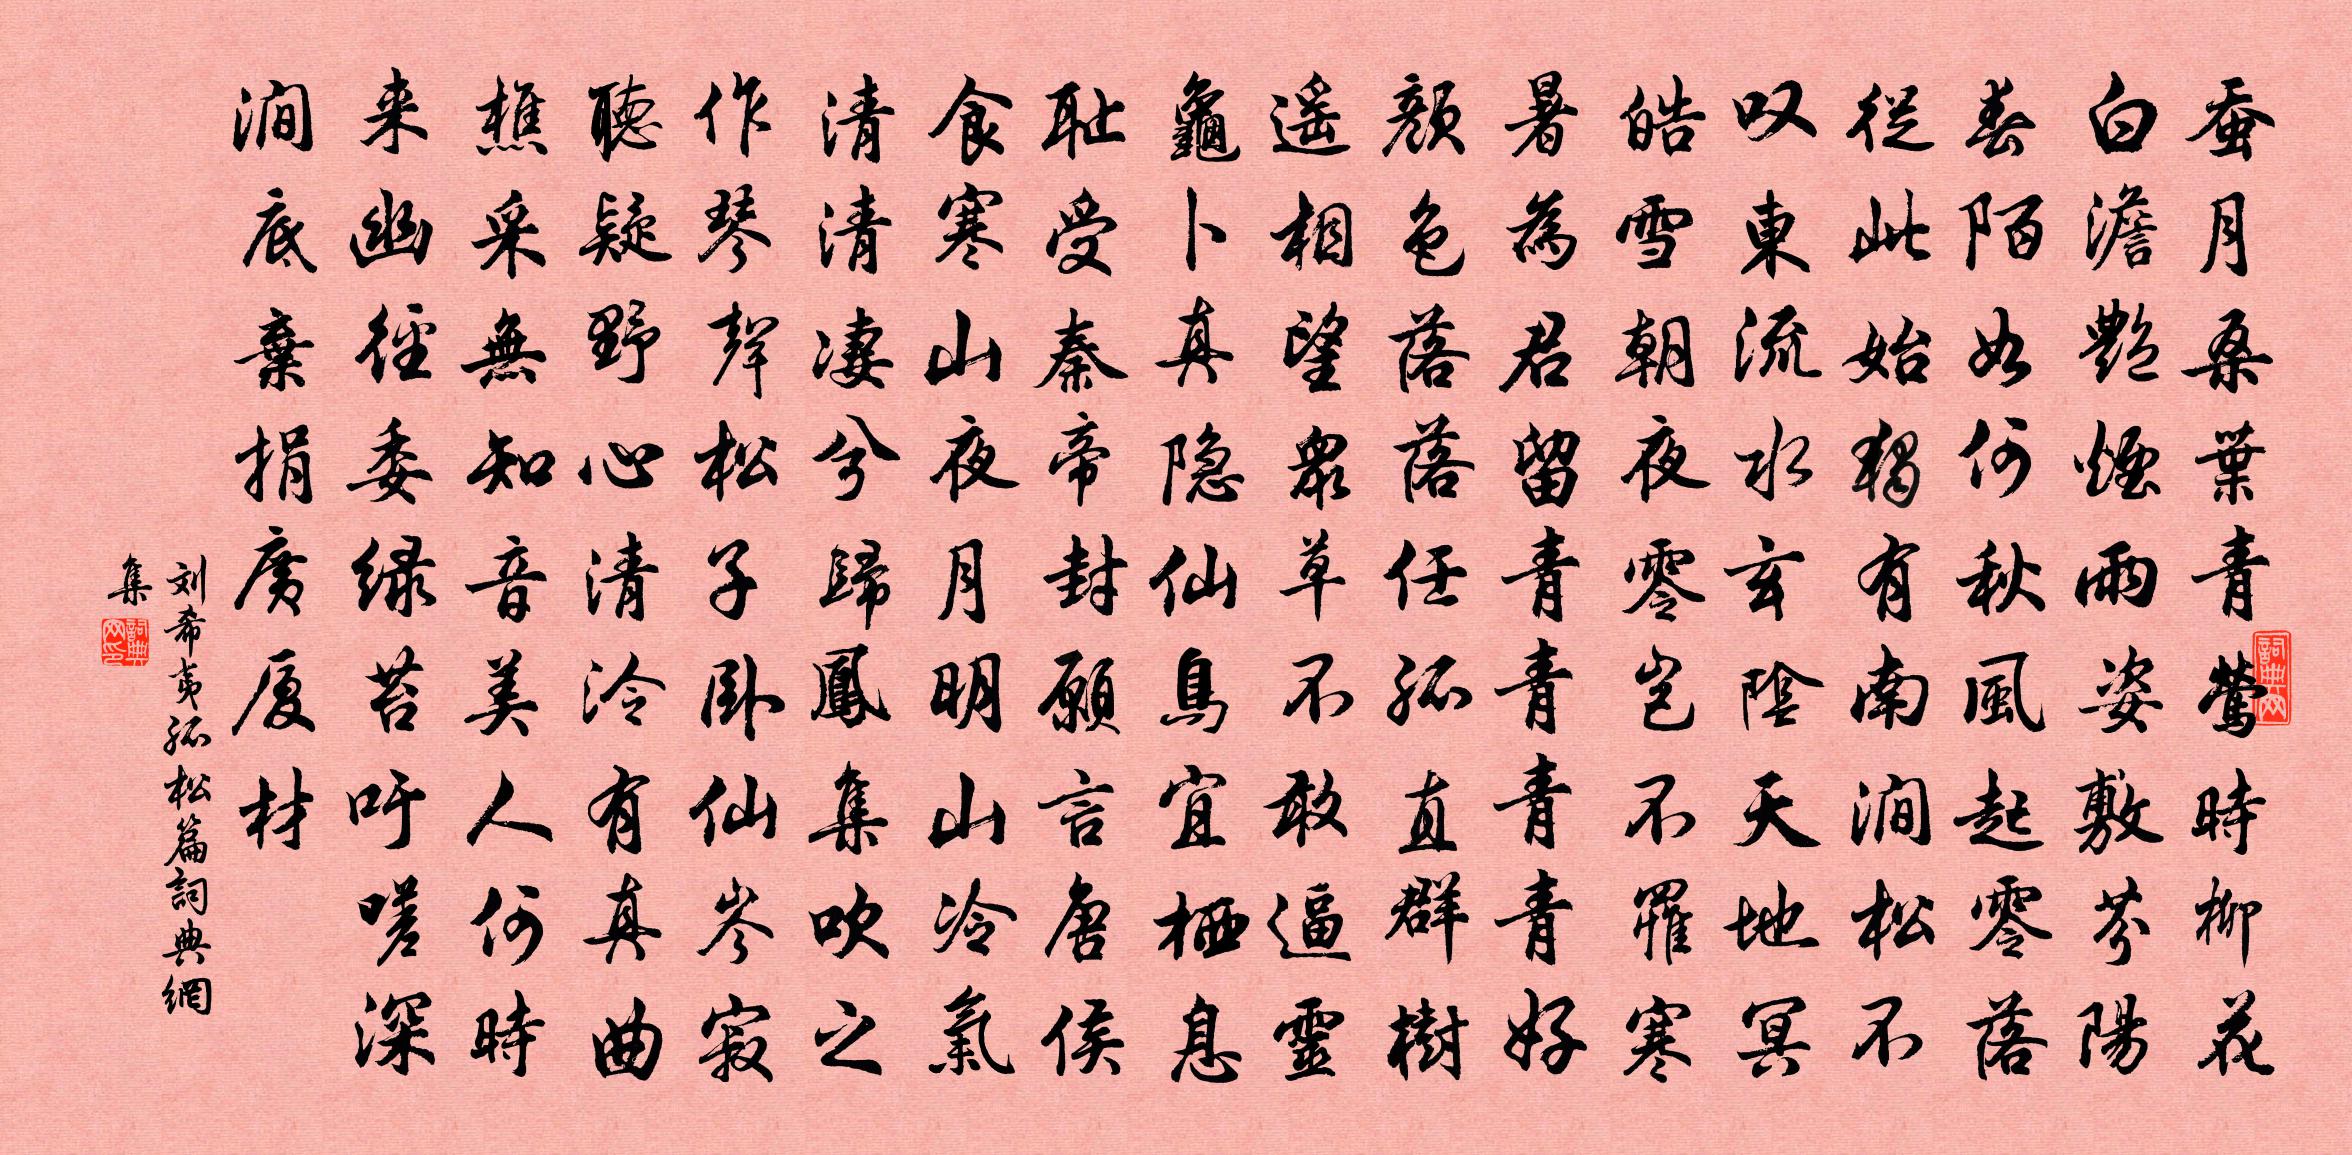 蚕月桑葉青鶯時柳花
白澹艷煙雨姿敷芬陽
春陌如何秋風起零落
從此始獨有南澗松不
叹東流水玄陰天地冥
皓雪朝夜零岂不罹寒
暑為君留青青青青好
顏色落落任孤直群樹
遥相望衆草不敢逼靈
龜卜真隐仙鳥宜栖息
耻受秦帝封願言唐侯
食寒山夜月明山冷氣
清清凄兮歸鳳集吹之
作琴聲松子卧仙岑寂
聽疑野心清泠有真曲
樵采無知音美人何時
来幽徑委绿苔吁嗟深
澗底棄捐廣厦材
刘希夷孤松篇詞典網
集
詞典网
詞典网印